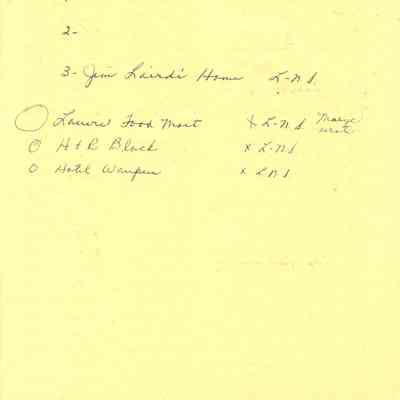 2-
3- Jim Laird's Home L-N S.
Laurie Food Mart X L-N S Marge wrote
H & R Block x L-N S
Hotel Waupun x L N S